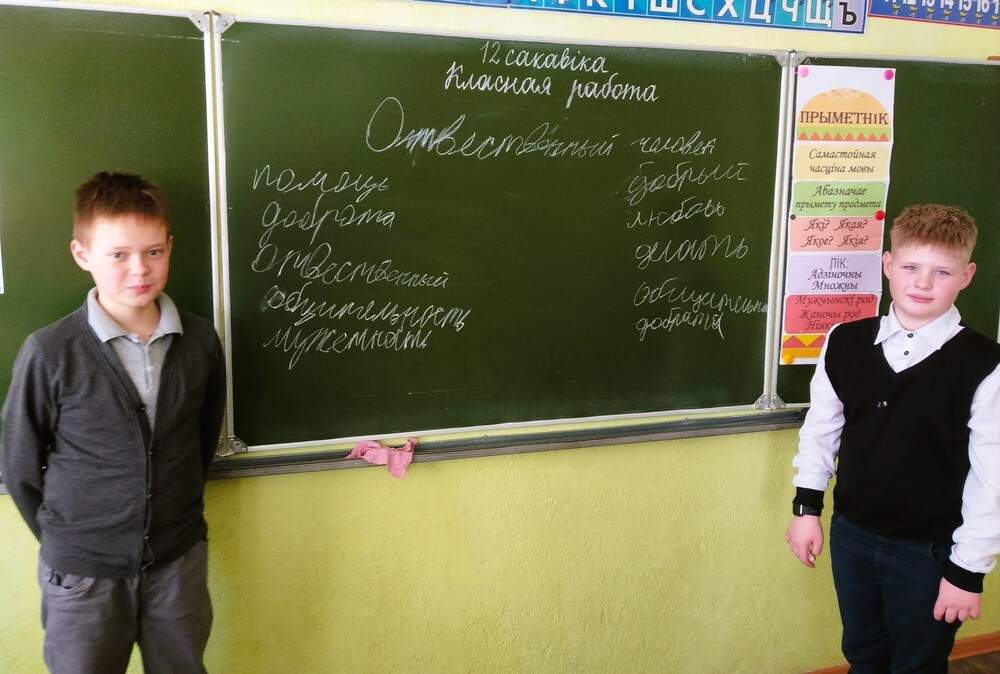 ШСЧХЦЧЩЪ
12 сакавіка
Класная работа
Отвественный человек
помощь
доброта
отвественный
общительность
мужемность
добрый
любовь
делать
доброта
ПРЫМЕТНІК
Самастойная
часціна мовы
Абазначае
прымету прадмета
Які? Якая?
Якое? Якія?
ЛІК:
Адзіночны
Множны
Мужчынскі род
Жаночы род